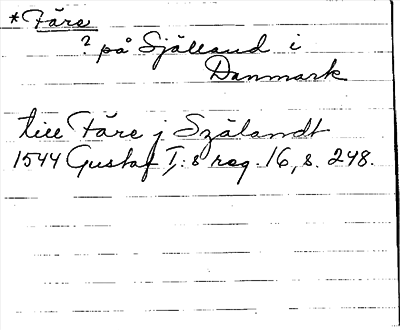 *Färe
? på Själland i
Danmark
till Färe j Szälandt
1544 Gustaf I:s reg. 16, s. 248.